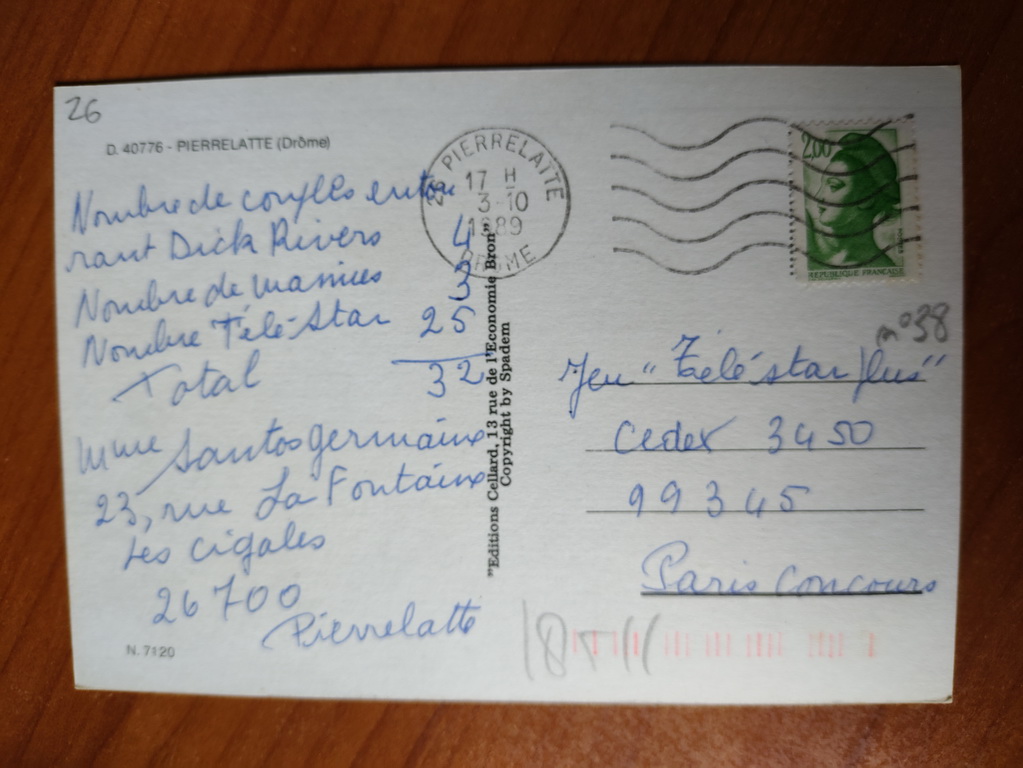 26
D. 40776 - PIERRELATTE (Drôme)
Nombre de couples entou
rant Dick Rivers 4
Nombre de mamies 3
Nombre Télé Star 25
Total 32
Mme Santos Germaine
23, rue La Fontaine
Les Cigales
26700
Pierrelatte
N. 7120
"Editions Cellard, 13 rue de l'Economie Bron"
Copyright by Spadem
26 PIERRELATTE
17 H
3-10
1989
DROME
2,00
REPUBLIQUE FRANCAISE
n° 38
Jeu "Télé star plus"
Cedex 3450
99345
Paris Concours